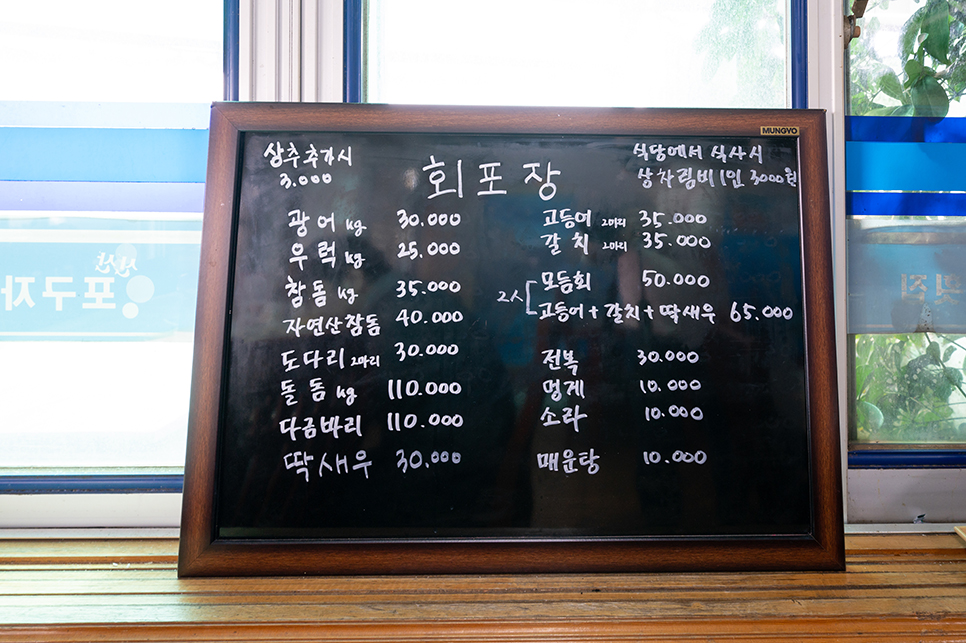 MUNGYO
상추추가시
3.000
회포장
식당에서 식사시
상차림비 1인 3000원
광어 kg 30.000
우럭 kg 25.000
참돔 kg 35.000
자연산참돔 40.000
도다리 2마리 30.000
돌돔 kg 110.000
다금바리 110.000
딱새우 30.000
고등어 2마리 35.000
갈치 2마리 35.000
2人
모듬회 50.000
고등어+갈치+딱새우 65.000
전복 30.000
멍게 10.000
소라 10.000
매운탕 10.000
포구자